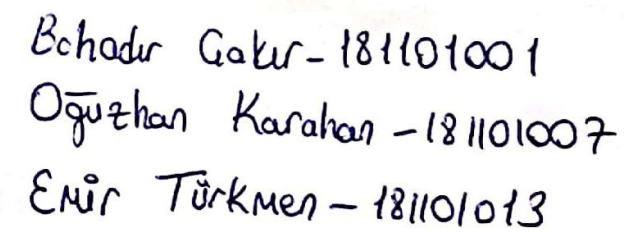 Bahadır Çakır - 181101001
Oğuzhan Karahan - 181101007
Emir Türkmen - 181101013